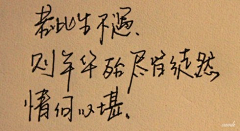 若此生不遇,
则年华殆尽皆徒然
情何以堪、